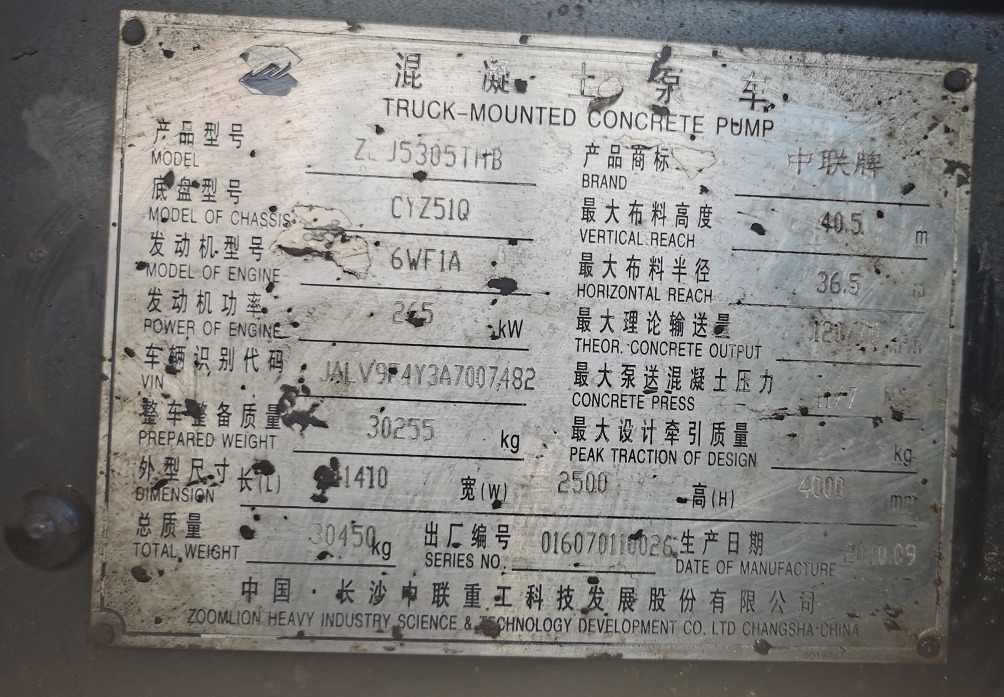 混凝土泵车
TRUCK-MOUNTED CONCRETE PUMP
产品型号 MODEL J5305THB 产品商标 BRAND 中联牌
底盘型号 MODEL OF CHASSIS CYZ51Q 最大布料高度 VERTICAL REACH 40.5 m
发动机型号 MODEL OF ENGINE 6WF1A 最大布料半径 HORIZONTAL REACH 36.5 m
发动机功率 POWER OF ENGINE 265 kW 最大理论输送量 THEOR. CONCRETE OUTPUT
车辆识别代码 VIN JALV9P4Y3A7007482 最大泵送混凝土压力 CONCRETE PRESS
整车整备质量 PREPARED WEIGHT 30255 kg 最大设计牵引质量 PEAK TRACTION OF DESIGN kg
外型尺寸 DIMENSION 长(L) 11410 宽(W) 2500 高(H) 4000 mm
总质量 TOTAL WEIGHT 30450 kg 出厂编号 SERIES NO. 016070110026 生产日期 DATE OF MANUFACTURE 2010.09
中国·长沙中联重工科技发展股份有限公司
ZOOMLION HEAVY INDUSTRY SCIENCE & TECHNOLOGY DEVELOPMENT CO. LTD CHANGSHA·CHINA